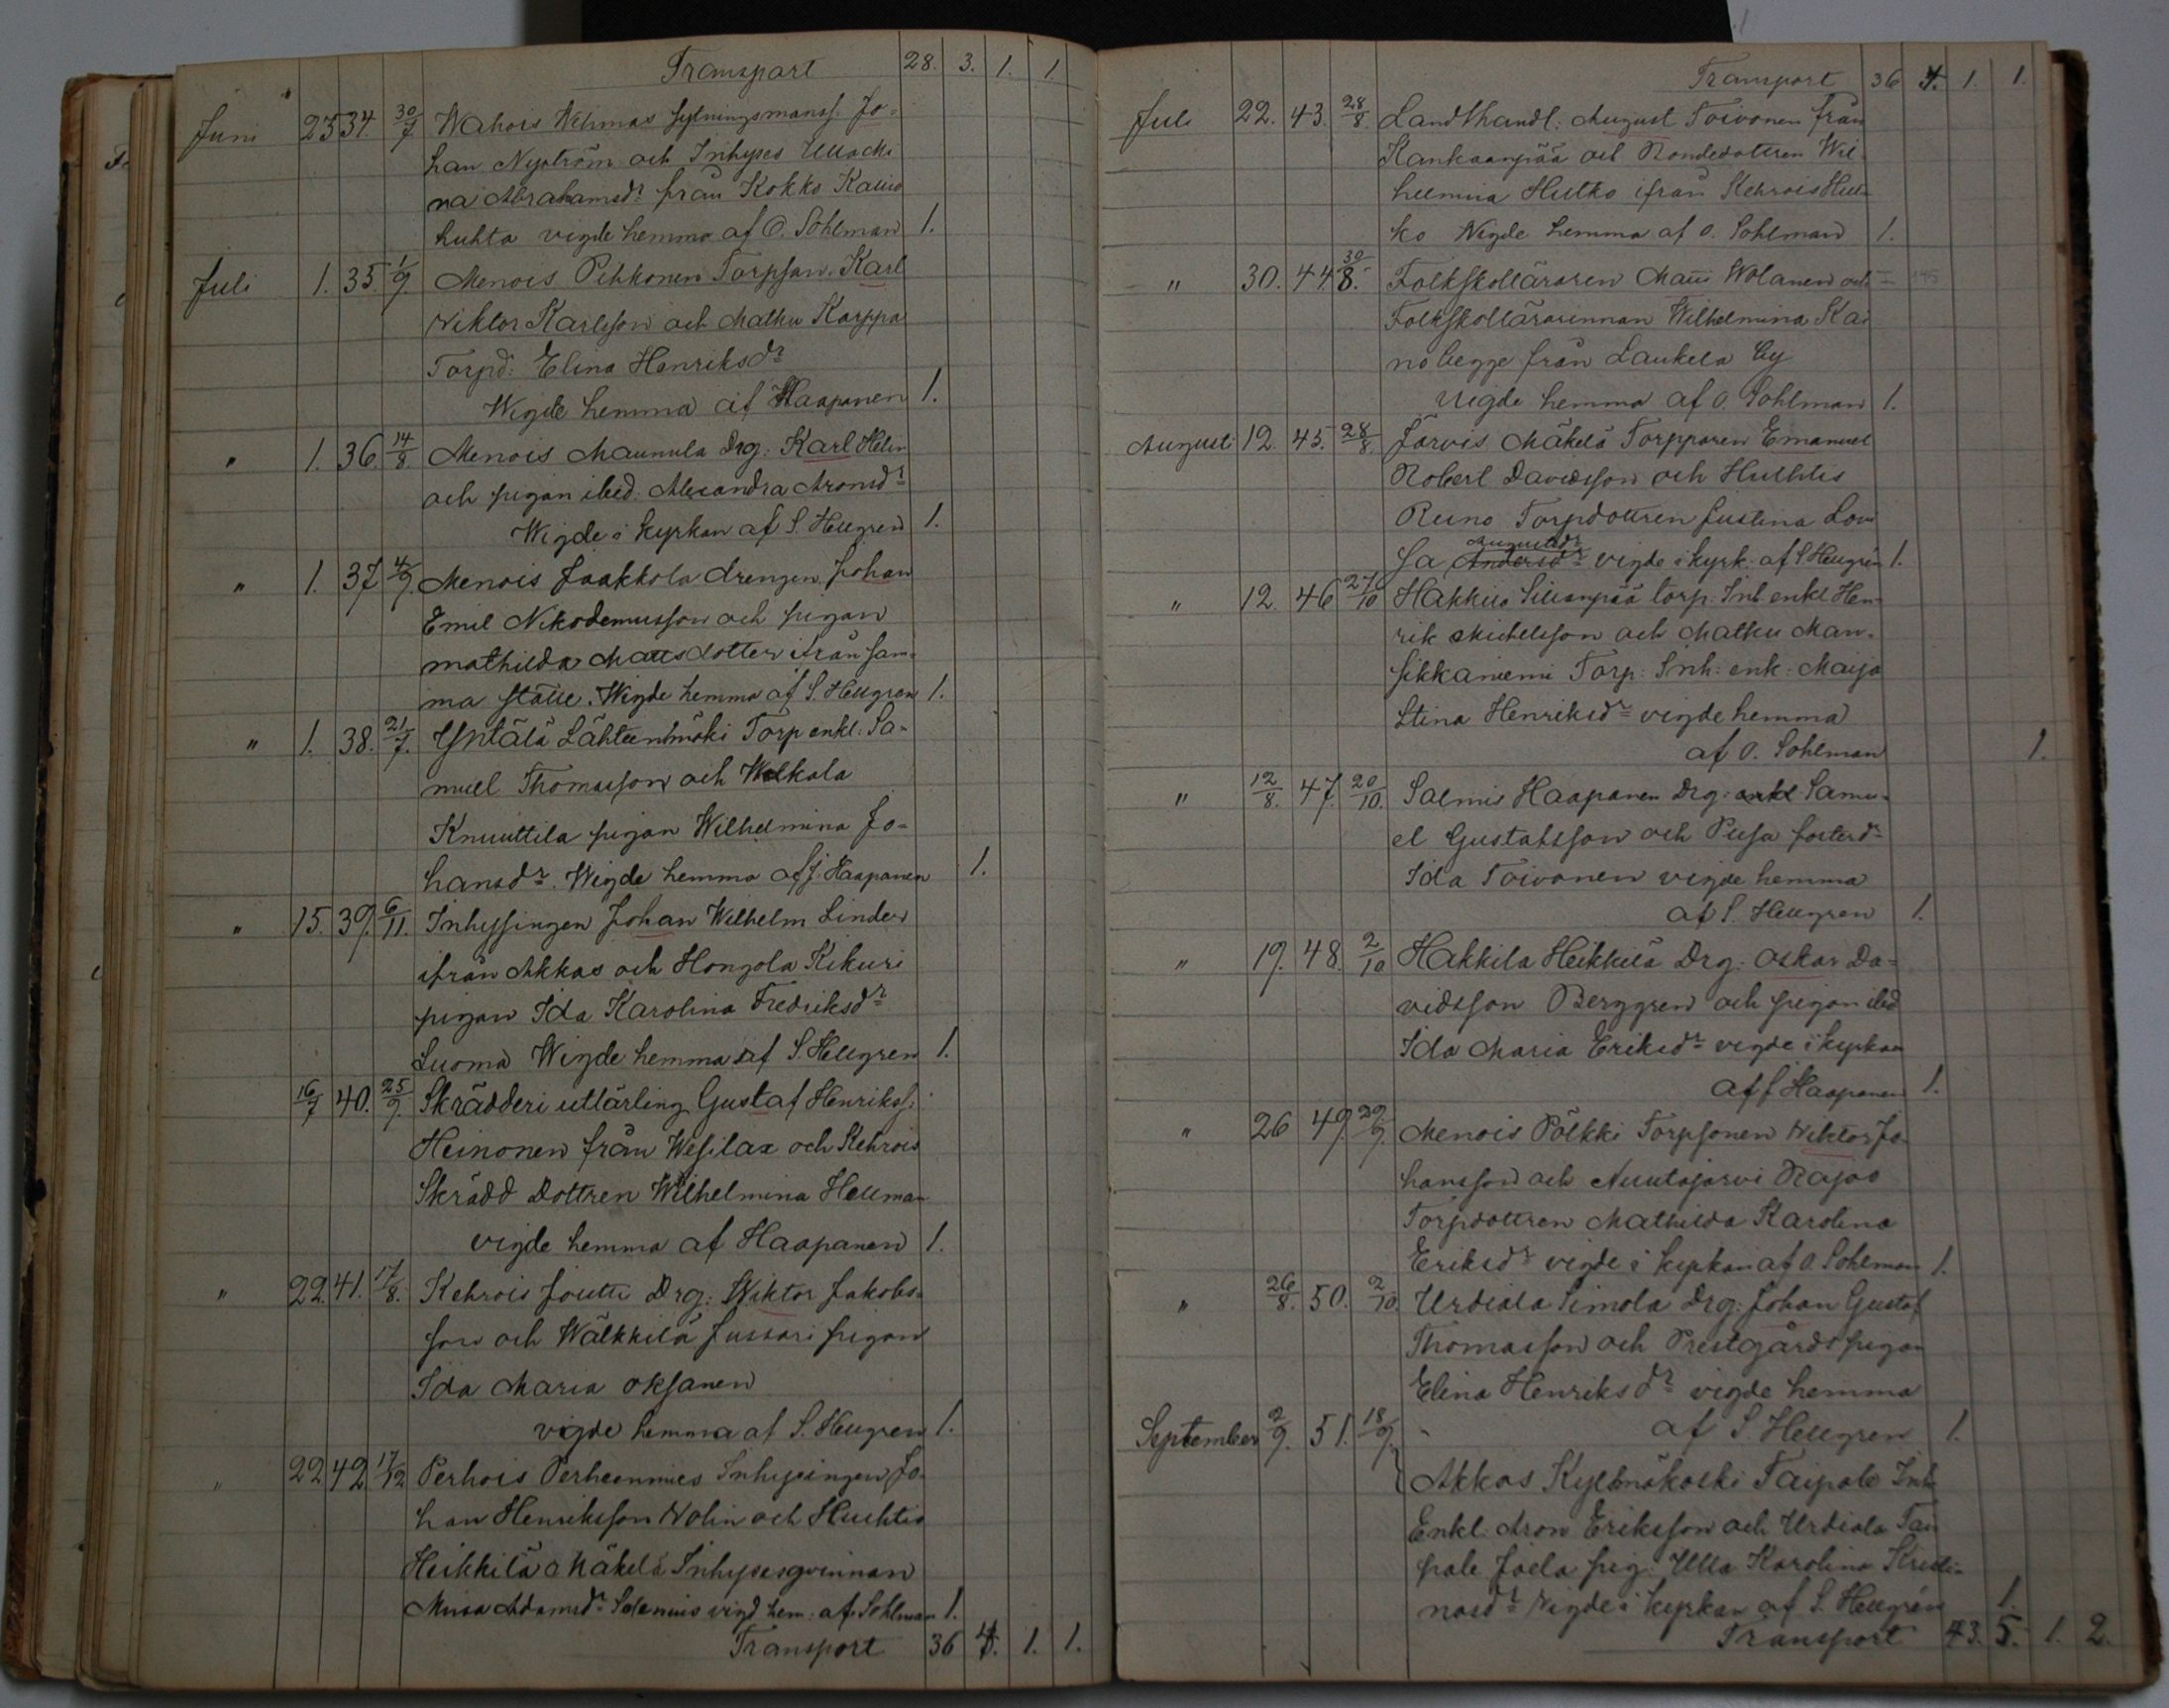 Transport 28. 3. 1. 1.
Juni 25 34. 30/7 Wahois Wehmas sytningsmanss. Jo-
han Nyström och Inhyses Ulla Mari-
na Abrahamsdr från Kokko Kauro
huhta vigde hemma af O. Sohlman 1.
Juli 1. 35. 1/9. Menois Pihkonen Torpson Karl
Viktor Karlsson och Matku Karppa
Torpd: Elina Henriksdr
Wigde hemma af Haapanen 1.
" 1. 36. 14/8. Menois Maunula Drg: Karl Helin
och pigan ibid. Alexandra Aronsdr
Wigde i kyrkan af S. Hellgren 1.
" 1. 37 4/9. Menois Jaakkola drengen Johan
Emil Nikodemusson och pigan
Mathilda Mattsdotter ifrån sam-
ma ställe. Wigde hemma af S. Hellgren 1.
" 1. 38. 21/7. Yntälä Lähteenmäki Torp enkl. Sa-
muel Thomasson och Walkala
Knuuttila pigan Wilhelmina Jo-
hansdr. Wigde hemma af J. Haapanen 1.
" 15. 39. 6/11. Inhysingen Johan Wilhelm Linder
ifrån Akkas och Hongola Kikuri
pigan Ida Karolina Fredriksdr
Luoma Wigde hemma af S. Hellgren 1.
16/7 40. 25/9. Skrädderi utlärling Gustaf Henrikss.
Heinonen från Wesilax och Kehrois
Skrädd Dottren Wilhelmina Hellman
vigde hemma af Haapanen 1.
" 22. 41. 17/8. Kehrois Joutti Drg: Wiktor Jakobs-
son och Wälkkilä Jussari pigan
Ida Maria Oksanen
vigde hemma af S. Hellgren 1.
" 22 42 17/12 Perhois Perheenmies Inhysingen Jo-
han Henriksson Nolin och Huhtis
Heikkilä Mäkelä Inhysesqvinnan
Miina Adamsdr Salenius vigd hem: af Sohlman 1.
Transport 36 4. 1. 1.
Transport 36 4. 1. 1.
Juli 22. 43. 28/8. Landthandl: August Toivonen från
Kankaanpää och Bondedottren Wil-
helmina Hutko ifrån Kehrois Hut-
ko Wigde hemma af O. Sohlman 1.
" 30. 44. 30/8. Folkskolläraren Matti Wolanen och
Folkskollärarinnan Wilhelmina Kai
no begge från Laukela by
vigde hemma af O. Sohlman 1.
Augusti 12. 45. 28/8. Järvis Mäkelä Torpparen Emanuel
Robert Davidsson och Huhtis
Reino Torpdottren Justina Lovi
Augustdr
sa Andersdr vigde i kyrk. af S Hellgrén 1.
" 12. 46 27/10 Hakkila Sillanpää torp. Inh enkl Hen-
rik Michelsson och Matku Man-
sikkaniemi Torp: Inh: enk: Maija
Stina Henriksdr vigde hemma
af O. Sohlman 1.
" 12/8. 47. 20/10. Salmis Haapanen Drg: enkl Samu-
el Gustafsson och Pusa fosterdr
Ida Toivonen vigde hemma
af S. Hellgren 1.
" 19. 48. 2/10 Hakkila Heikkilä Drg: Oskar Da-
vidsson Berggren och pigan ibid
Ida Maria Eriksdr vigde i kyrkan
af J Haapanen 1.
" 26 49. 29/9. Menois Pölkki Torpsonen Wiktor Jo-
hansson och Nuutajarvi Rajas
Torpdottren Mathilda Karolina
Eriksdr vigde i kyrkan af O. Sohlman 1.
" 26/8. 50. 2/10. Urdiala Simola Drg: Johan Gustaf
Thomasson och Prestgårds pigan
Elina Henriksdr vigde hemma
af S Hellgren 1.
September 2/9. 51. 18/9.
Akkas Kylmäkoski Taipale Inh
Enkl. Aron Eriksson och Urdiala Tai
pale Joela pig: Ulla Karolina Kristi-
nasdr Wigde i kyrkan af S. Hellgrén 1.
Transport 43. 5. 1. 2.